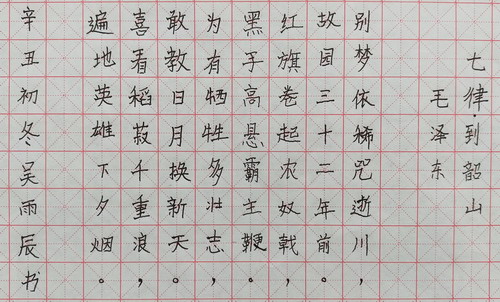 七律·到韶山
毛泽东
别梦依稀咒逝川，
故园三十二年前。
红旗卷起农奴戟，
黑手高悬霸主鞭。
为有牺牲多壮志，
敢教日月换新天。
喜看稻菽千重浪，
遍地英雄下夕烟。
辛丑初冬吴雨辰书